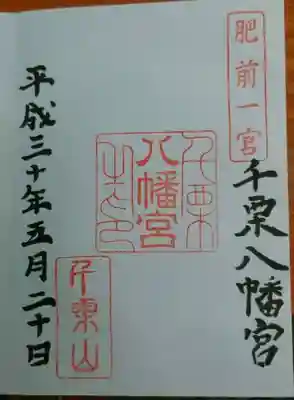 肥前一宮
千栗八幡宮
八幡宮
千栗山
平成三十年五月二十日